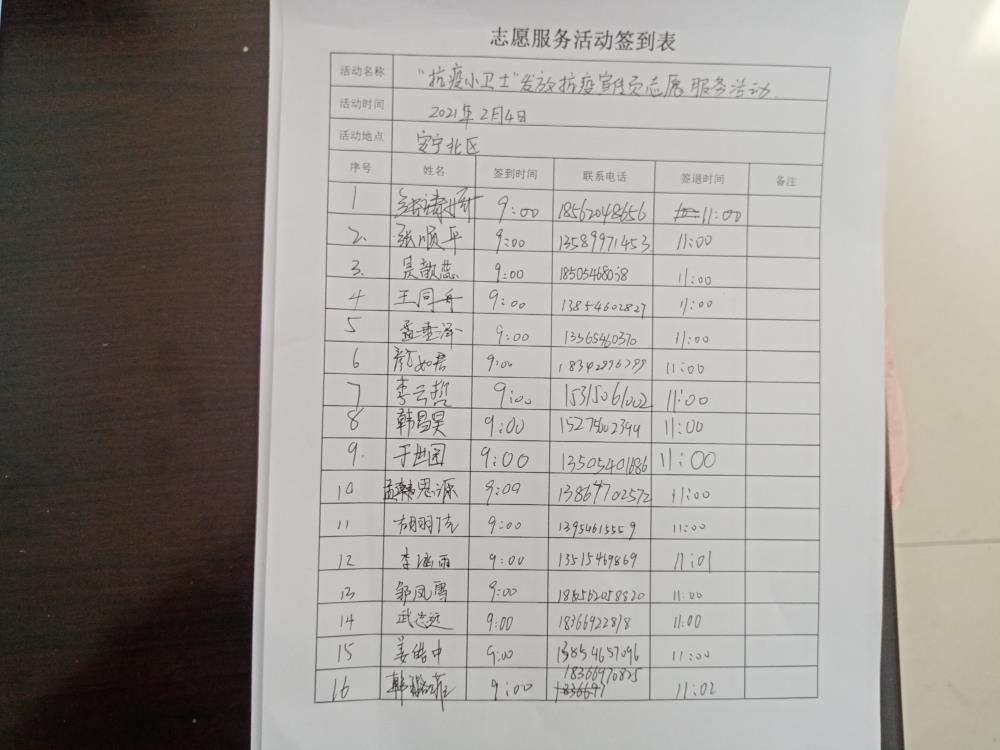 志愿服务活动签到表
活动名称 "抗疫小卫士"发放抗疫宣传页志愿服务活动
活动时间 2021年2月4日
活动地点 安宁北区
序号 姓名 签到时间 联系电话 签退时间 备注
1 9:00 18562048656 11:00
2. 张顺平 9:00 13589971453 11:00
3. 吴歆蕊 9:00 11:00
4 王同舟 9:00 13854602827 11:00
5 孟垂泽 9:00 13565460370 11:00
6 颜如君 9:00 11:00
7 李云哲 9:00 15315061002 11:00
8 韩昌昊 9:00 15275002399 11:00
9. 于世园 9:00 13505401686 11:00
10 孟韩思源 9:00 13864702572 11:00
11 9:00 11:00
12 李涵雨 9:00 13515469869 11:01
13 邹凤雪 9:00 11:00
14 武志远 9:00 11:00
15 姜皓中 9:00 13854657096 11:00
16 9:00 18366970825 11:02